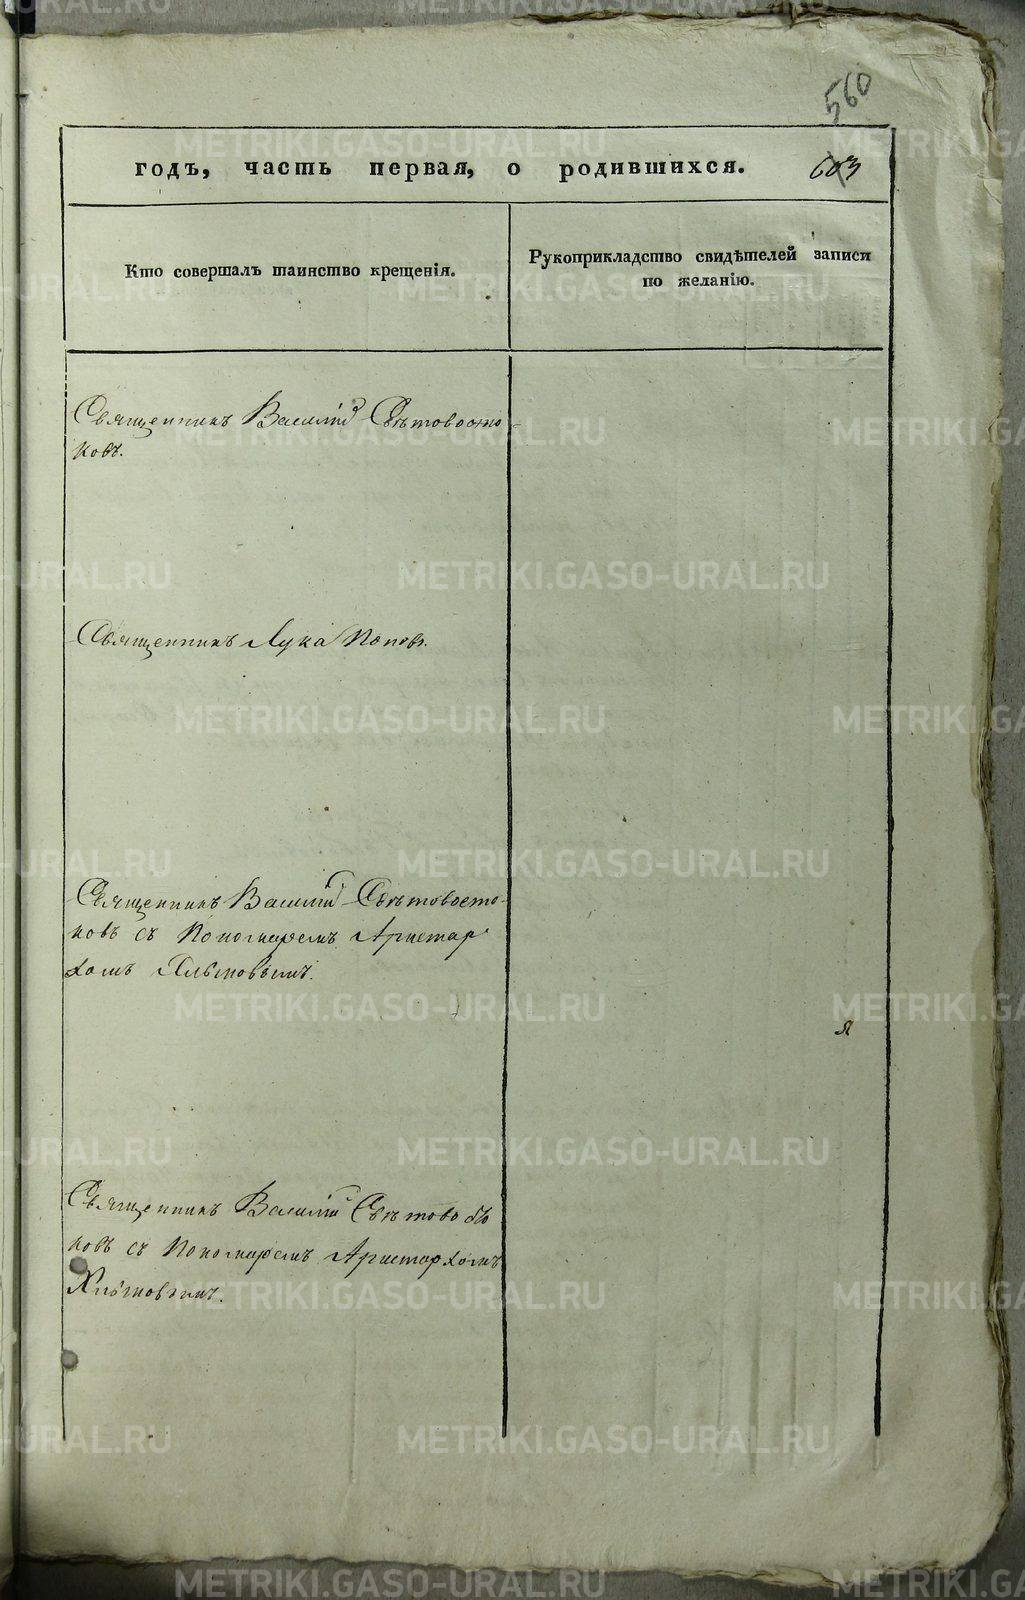 560
годъ, часть первая, о родившихся. 603
Кто совершалъ таинство крещенія.
Рукоприкладство свидѣтелей записи
по желанію.
Священникъ Василій Свѣтовосто
ковъ.
Священникъ Лука Поповъ.
Священникъ Василій Свѣтовосто-
ковъ съ Пономаремъ Аристар
хомъ
Священникъ Василій
ковъ съ Пономаремъ Аристархомъ
METRIKI.GASO-URAL.RU